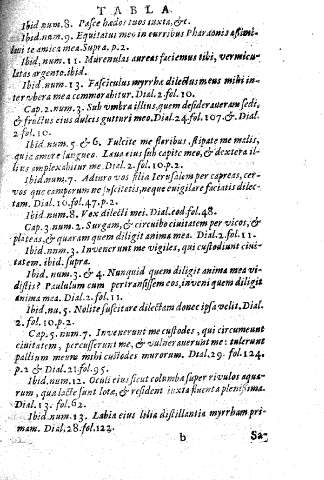 TABLA.
Ibid. num. 8. Pasce hædos tuos iuxta, &c.
Ibid. num. 9. Equitatui meo in curribus Pharaonis assimi-
lui te amica mea. Supra. p. 2.
Ibid, num. 11. Murenulas aureas faciemus tibi, vermicu-
latas argento. ibid.
Ibid. num. 13. Fasciculus myrrhæ dilectus meus mihi in-
ter vbera mea commorabitur. Dial. 2. fol. 10.
Cap. 2. num. 3. Sub vmbra illius, quem desideraueram sedi,
& fructus eius dulcis gutturi meo. Dial. 24. fol. 107. & Dial.
2. fol. 10.
Ibid. num. 5. & 6. Fulcite me floribus, stipate me malis,
quia amore langueo. Laua eius sub capite meo, & dextera il-
lius amplexabitur me. Dial. 2. fol. 10. p. 2.
Ibid. num. 7. Adiuro vos filia Ierusalem per capreas, cer-
vos que camporum ne suscitetis, neque euigilare faciatis dilec-
tam. Dial. 10. fol. 47. p. 2.
Ibid. num. 8. Vox dilecti mei. Dial. eod. fol. 48.
Cap. 3. num. 2. Surgam, & circuibo ciuitatem per vicos, &
plateas, & quaram quem diligit anima mea. Dial. 2. fol. 11.
Ibid. num. 3. Inuenerunt me vigiles, qui custodiunt ciui-
tatem. ibid. supra.
Ibid. num. 3. & 4. Nunquid quem diligit anima mea vi-
distis? Paululum cum pertransissem eos, inueni quem diligit
anima mea. Dial. 2. fol. 11.
Ibid. nu. 5. Nolite suscitare dilectam donec ipsa velit. Dial.
2. fol. 10. p. 2.
Cap. 5. num. 7. Inuenerunt me custodes, qui circumeunt
ciuitatem, percusserunt me, & vulnerauerunt me: tulerunt
pallium meum mihi custodes murorum. Dial. 29. fol. 124.
p. 2 & Dial. 21. fol. 95.
Ibid. num. 12. Oculi eius sicut columba super riuulos aqua-
rum, qua lacte sunt lotæ, & resident iuxta fluenta plenissima.
Dial. 13. fol. 62.
Ibid. num. 13. Labia eius lilia distillantia myrrham pri-
mam. Dial. 28. fol. 122.
b Sa-